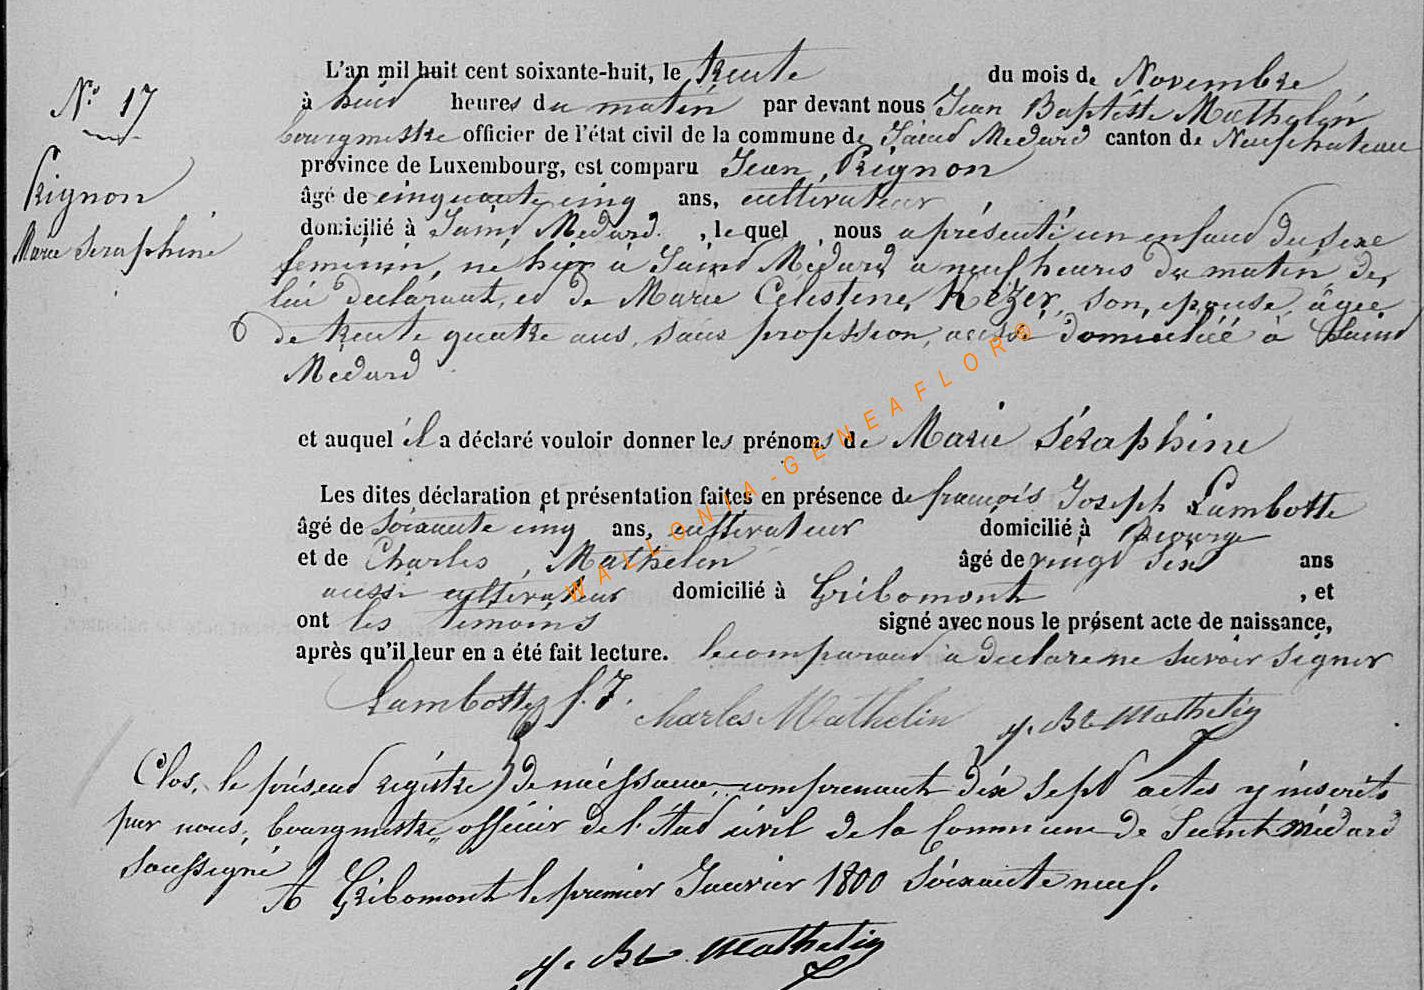 N° 17
Pignon
Marie Seraphine
L'an mil huit cent soixante-huit, le trente du mois de Novembre
à huit heures du matin par devant nous Jean Baptiste Mathelin
bourgmestre officier de l'état civil de la commune de Saint Medard canton de Neufchateau
province de Luxembourg, est comparu Jean, Pignon
âgé de cinquante cinq ans, cultivateur
domicilié à Saint Medard. , lequel nous a présenté un enfant du sexe
feminin, ne hier à Saint Médard a neuf heures du matin de,
lui declarant, et de Marie Celestine, Kézer, son, epouse, âgée
de trente quatre ans, sans profession, aussi domiciliée à Saint
Médard
et auquel il a déclaré vouloir donner les prénoms de Marie Séraphine
Les dites déclaration et présentation faites en présence de françois Joseph Lambotte
âgé de soixante cinq ans, cultivateur domicilié à
et de Charles, Mathelin âgé de vingt six ans
aussi cultivateur domicilié à Gribomont , et
ont les témoins signé avec nous le présent acte de naissance,
après qu'il leur en a été fait lecture. le comparant a declaré ne savoir signer
Lambotte f. J. Charles Mathelin J. Bt Mathelin
Clos, le présent régistre de naissance, comprenant dix sept actes y inscrits
par nous, bourgmestre, officier de l'état civil de la Commune de Saint Médard
soussigné
A Gribomont le premier Janvier 1800 soixante neuf.
J. Bt Mathelin
WALLONIA-GENEAFLOR©